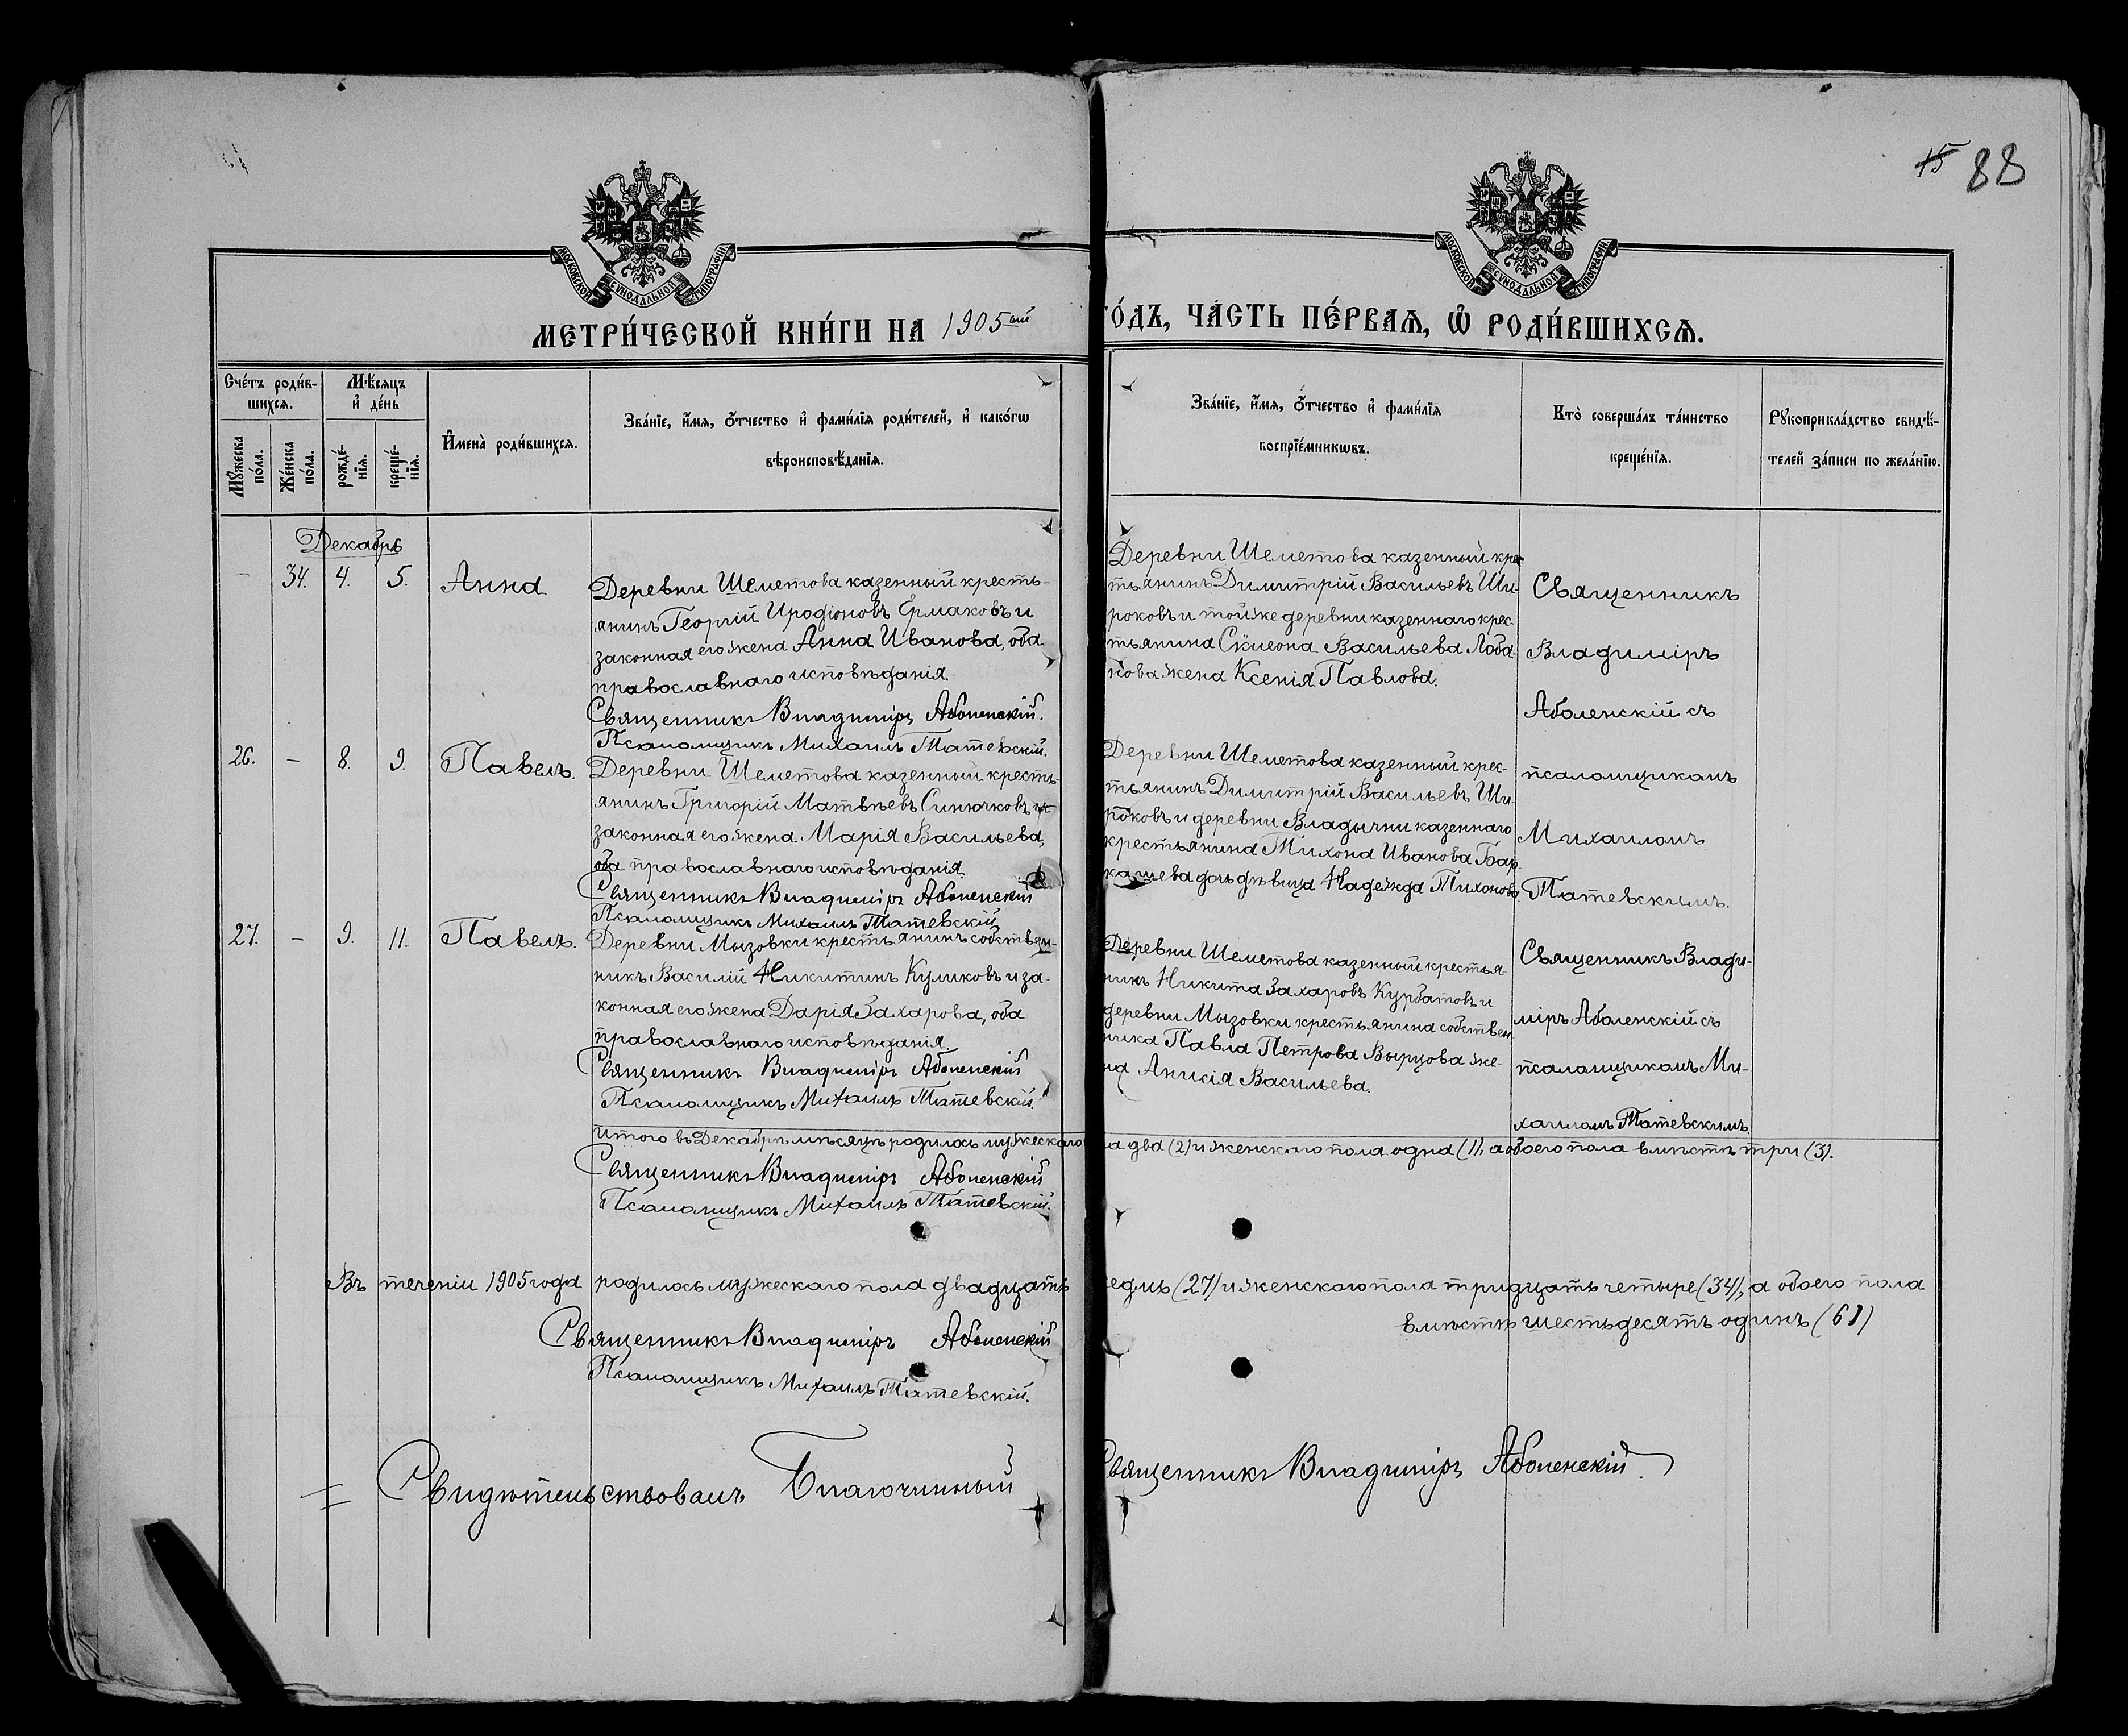 15 88
МОСКОВСКОЙ СѴНОДАЛЬНОЙ ТИПОГРАФІИ
МОСКОВСКОЙ СѴНОДАЛЬНОЙ ТИПОГРАФІИ
МЕТРИ́ЧЕСКОЙ КНИ́ГИ НА 1905ый ГО́ДЪ, ЧА́СТЬ ПЕ́РВАѦ, Ѽ РОДИ́ВШИХСѦ.
Сче́тъ роди́в-
шихсѧ.
Мѣ́сяцъ
и҆ де́нь
Мꙋ́жеска по́ла.
Же́нска по́ла.
рожде́-
нїѧ.
креще́-
нїѧ.
И҆мена̀ роди́вшихсѧ.
Зва́нїе, и҆́мѧ, ѻ҆́тчество и҆ фами́лїѧ роди́телей, и҆ како́гѡ
вѣроисповѣ́данїѧ.
Зва́нїе, и҆́мѧ, ѻ҆́тчество и҆ фами́лїѧ
воспрїе́мникѡвъ.
Кто̀ соверша́лъ та́инство
креще́нїѧ.
Рꙋкоприкла́дство свидѣ́-
телей за́писи по жела́нїю.
Декабрь
- 34. 4. 5. Анна
Деревни Шеметова казенный кресть-
янинъ Георгій Иродіоновъ Ермаковъ и
законная его жена Анна Иванова, оба
православнаго исповѣданія.
Священникъ Владиміръ Аболенскій.
Псаломщикъ Михаилъ Татевскій.
Деревни Шеметова казенный крес-
тьянинъ Димитрій Васильевъ Ши-
роковъ и той же деревни казеннаго крес-
тьянина Симеона Васильева Лоба-
нова жена Ксенія Павлова.
Священникъ
Владиміръ
Аболенскій съ
псаломщикомъ
Михаиломъ
Татевскимъ.
26. - 8. 9. Павелъ.
Деревни Шеметова казенный кресть-
янинъ Григорій Матвѣевъ Синючковъ и
законная его жена Марія Васильева,
оба православнаго исповѣданія.
Священникъ Владиміръ Аболенскій
Псаломщикъ Михаилъ Татевскій
Деревни Шеметова казенный крес-
тьянинъ Димитрій Васильевъ Ши-
роковъ и деревни Владычни казеннаго
крестьянина Тихона Иванова Бар-
кашева дочь дѣвица Надежда Тихонова.
27. - 9. 11. Павелъ.
Деревни Мызовки крестьянинъ собствен-
никъ Василій Никитинъ Куликовъ и за-
конная его жена Дарія Захарова, оба
православнаго исповѣданія.
Священникъ Владиміръ Аболенскій
Псаломщикъ Михаилъ Татевскій.
Деревни Шеметова казенный крестья-
нинъ Никита Захаровъ Курбатовъ и
деревни Мызовки крестьянина собствен-
ника Павла Петрова Вырцова же-
на Анисія Васильева.
Священникъ Влади-
міръ Аболенскій съ
псаломщикомъ Ми-
хаиломъ Татевскимъ.
Итого въ Декабрѣ мѣсяцѣ родилось мужескаго ла два (2) и женскаго пола одна (1), а обоего пола вмѣстѣ три (3).
Священникъ Владиміръ Аболенскій
Псаломщикъ Михаилъ Татевскій.
Въ теченіи 1905 года родилось мужескаго пола двадцать седмь (27) и женскаго пола тридцать четыре (34), а обоего пола
вмѣстѣ шестьдесятъ одинъ (61)
Священникъ Владиміръ Аболенскій
Псаломщикъ Михаилъ Татевскій.
Свидѣтельствовалъ Благочинный Священникъ Владиміръ Аболенскій.